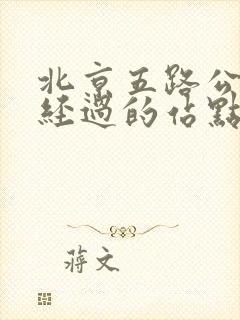 北京五路公
經過的佔點
蔣文